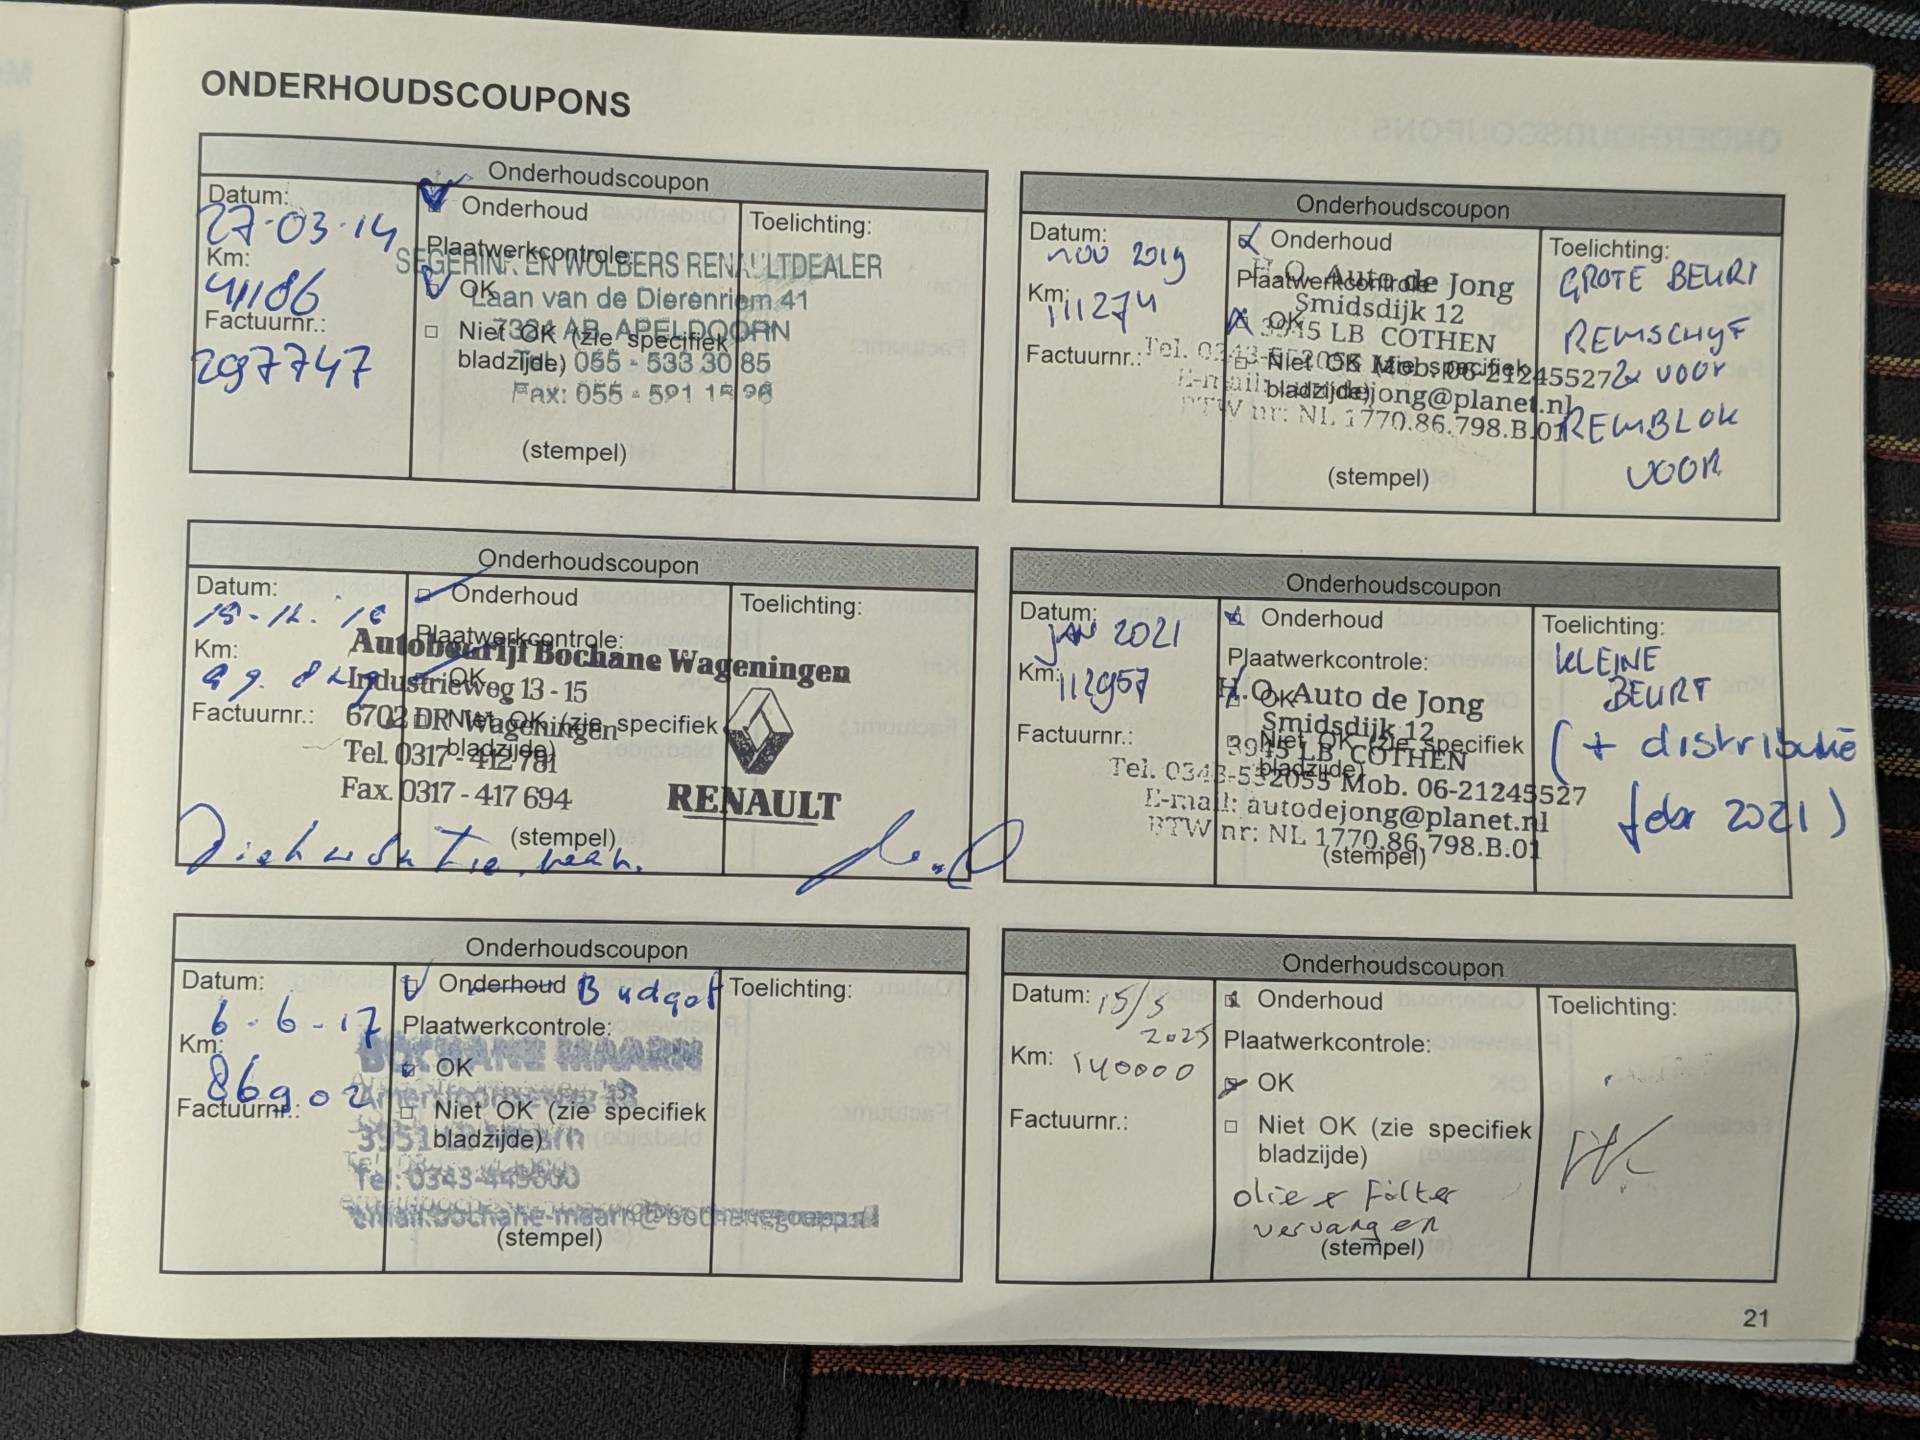 ONDERHOUDSCOUPONS
Onderhoudscoupon
Datum:
27-03-14
Km:
41186
Factuurnr.:
297747
Onderhoud
Plaatwerkcontrole:
OK
Niet OK (zie specifiek
bladzijde)
SEGERINK EN WOLBERS RENAULTDEALER
Laan van de Dierenriem 41
APELDOORN
Tel. 055 - 533 30 85
Fax: 055 - 591
(stempel)
Toelichting:
Onderhoudscoupon
Datum:
15-12.16
Km:
Factuurnr.:
Onderhoud
Plaatwerkcontrole:
OK
Niet OK (zie specifiek
bladzijde)
Autobedrijf Bochane Wageningen
Industrieweg 13 - 15
6702 DR Wageningen
Tel. 0317 - 412 781
Fax. 0317 - 417 694
RENAULT
(stempel)
Toelichting:
Onderhoudscoupon
Datum:
6-6-17
Km:
86902
Factuurnr.:
Onderhoud Budget
Plaatwerkcontrole:
OK
Niet OK (zie specifiek
bladzijde)
BOCHANE MAARN
Amersfoortseweg
3951 LB Maarn
Tel: 0343-449000
email:bochane-maarn@bochanegroep.nl
(stempel)
Toelichting:
Onderhoudscoupon
Datum:
nov 2019
Km:
111274
Factuurnr.:
Onderhoud
Plaatwerkcontrole:
OK
Niet OK (zie specifiek
bladzijde)
H.O. Auto de Jong
Smidsdijk 12
3945 LB COTHEN
Tel. 0343-552055 Mob. 06-21245527
E-mail: autodejong@planet.nl
BTW nr: NL 1770.86.798.B.01
(stempel)
Toelichting:
GROTE BEURT
REMSCHYF
2x VOOR
REMBLOK
VOOR
Onderhoudscoupon
Datum:
jan 2021
Km:
112957
Factuurnr.:
Onderhoud
Plaatwerkcontrole:
OK
Niet OK (zie specifiek
bladzijde)
H.O. Auto de Jong
Smidsdijk 12
3945 LB COTHEN
Tel. 0343-552055 Mob. 06-21245527
E-mail: autodejong@planet.nl
BTW nr: NL 1770.86.798.B.01
(stempel)
Toelichting:
KLEINE
BEURT
(+ distributie
feb 2021)
Onderhoudscoupon
Datum: 15/3
2025
Km: 140000
Factuurnr.:
Onderhoud
Plaatwerkcontrole:
OK
Niet OK (zie specifiek
bladzijde)
olie & Filter
vervangen
(stempel)
Toelichting:
21